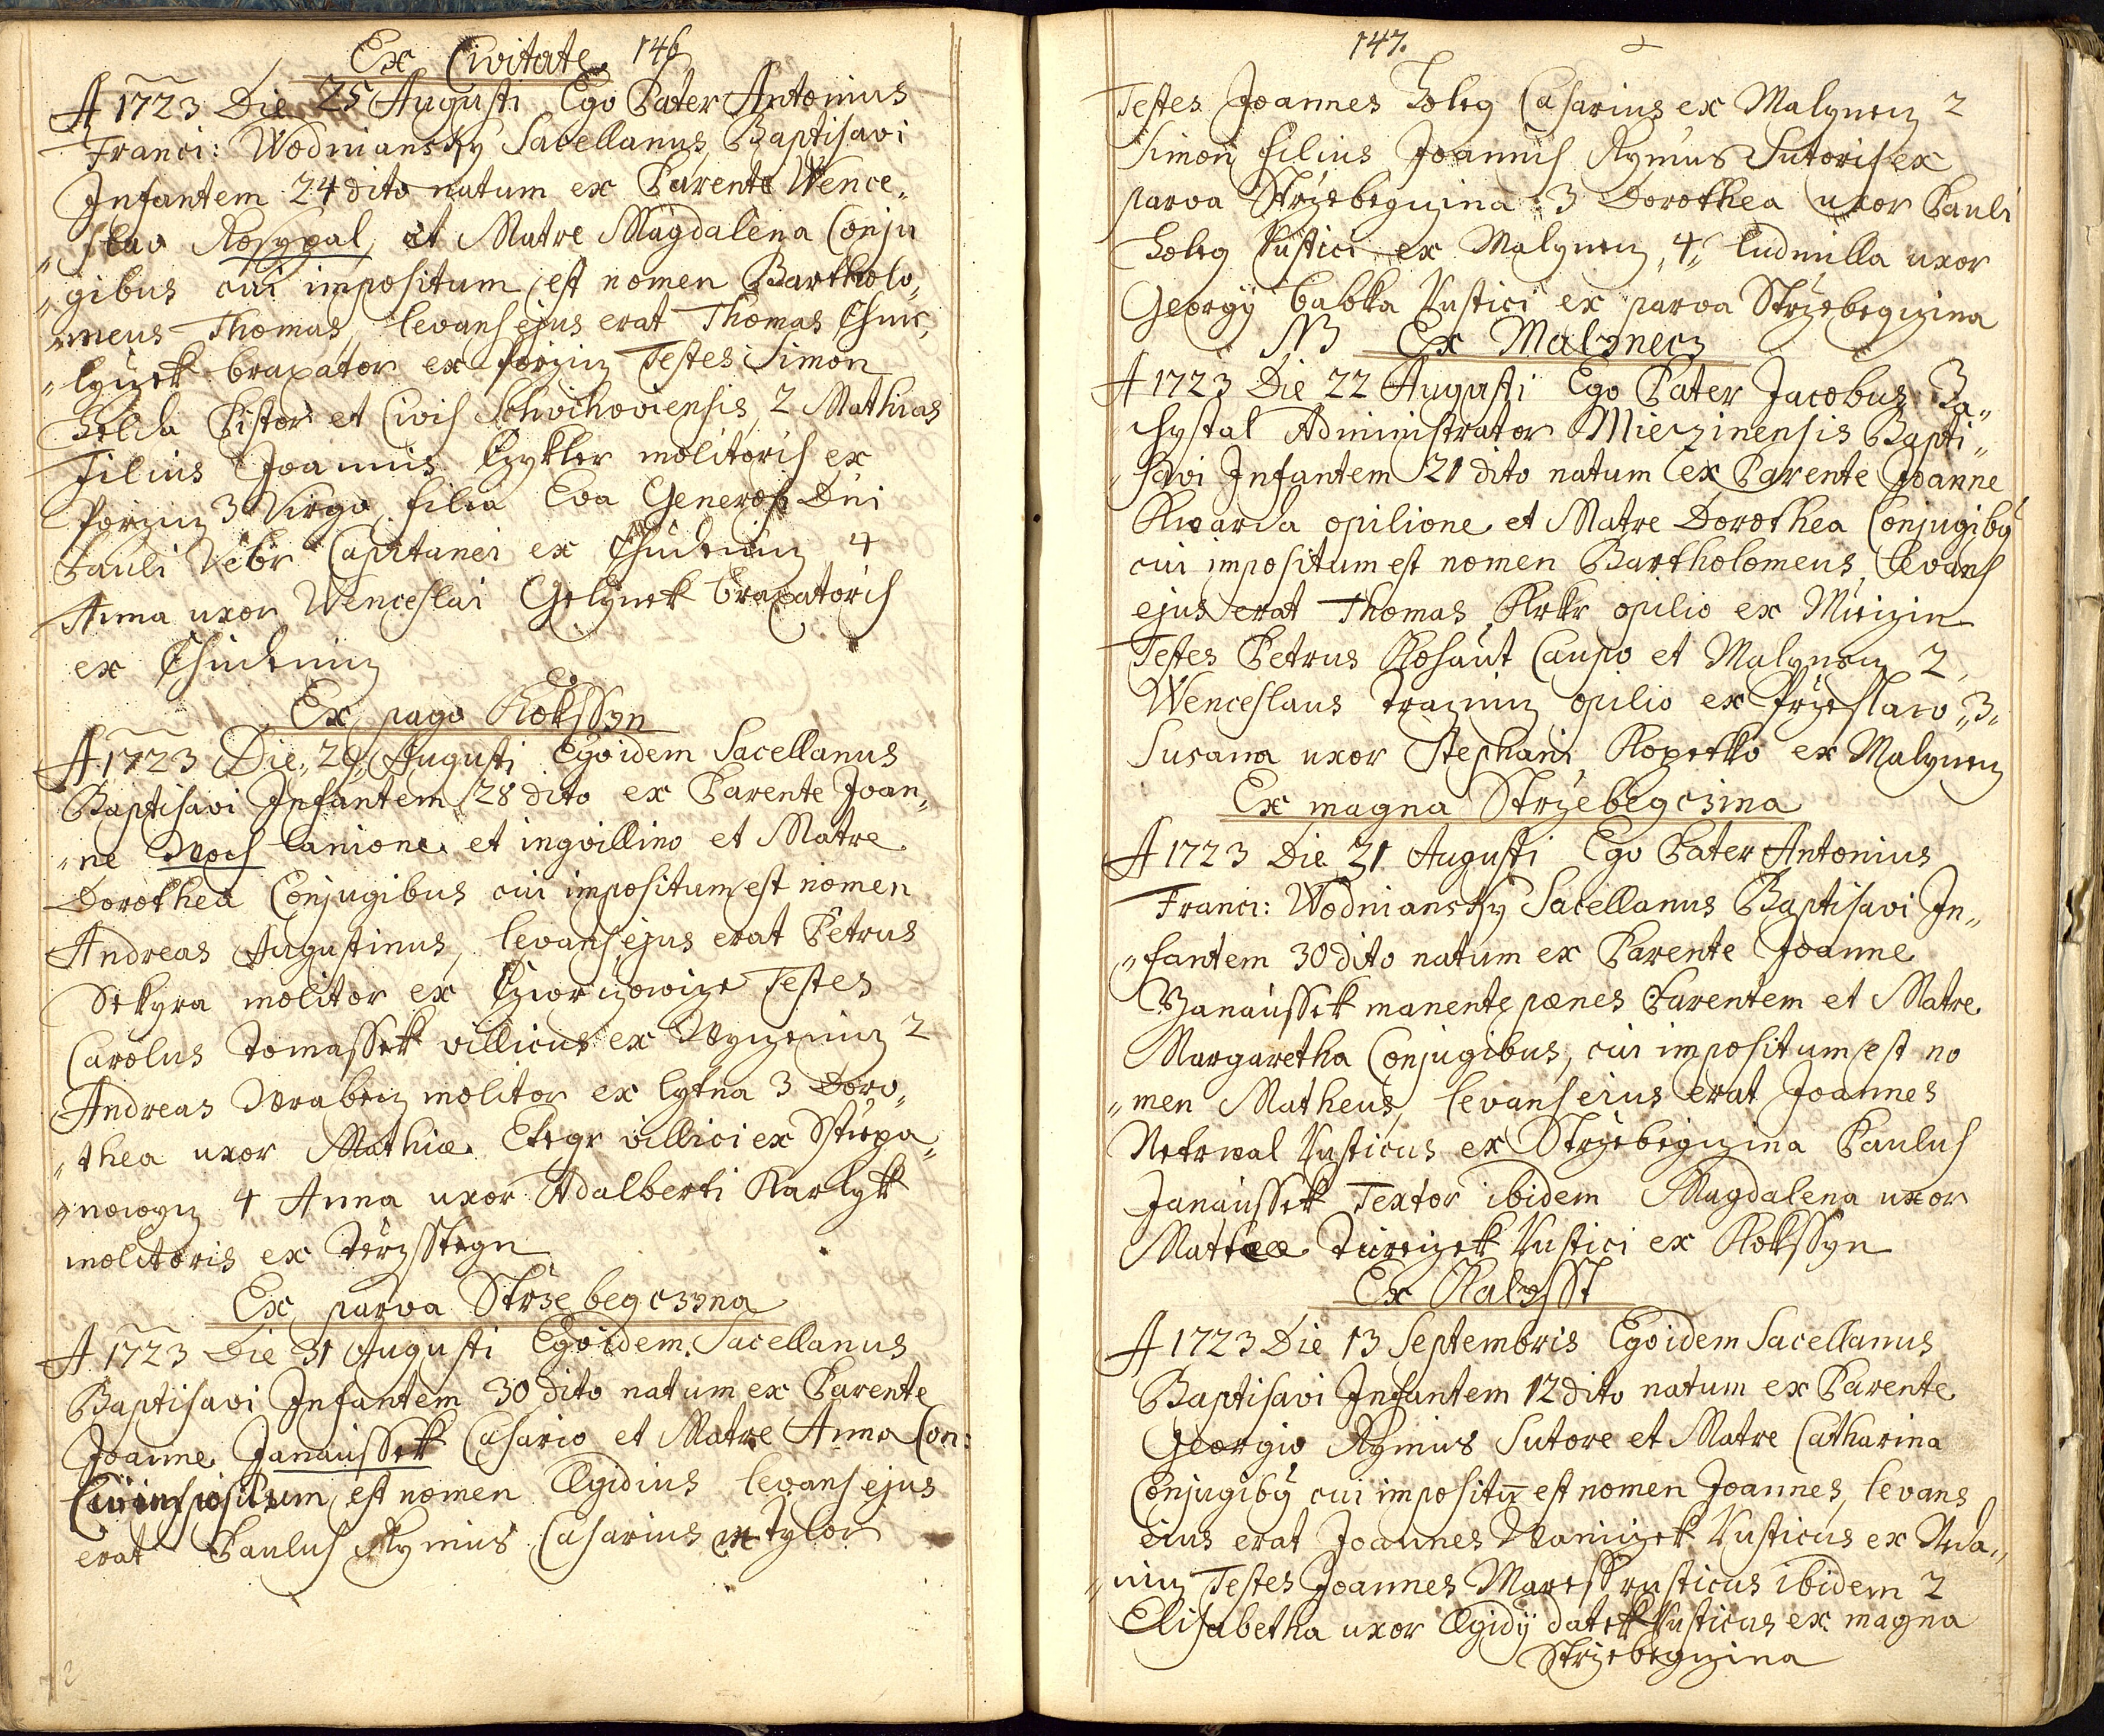 Ex Civitate. 146
A 1723 Die 25 Augusti Ego Pater Antonius
Franci: Wodniansky Sacellanus Baptisavi
Infantem 24 dito natum ex Parente Wence„
„slao Rosypal, et Matre Magdalena Conju
„gibus cui impositum est nomen Bartholo„
„meus Thomas, levans ejus erat Thomas
braxator ex Testes Simon
Pistor et Civis Schwihoviensis, 2 Mathias
Filius Joannis molitoris ex
3 Virgo filia Eva Generosi Dni
Pauli Capitanei ex 4
Anna uxor Wenceslai Gelynek braxatoris
ex
Ex pago Rokssyn
A 1723 Die„ 29„ Augusti Ego idem Sacellanus
Baptisavi Infantem 28 dito ex Parente Joan„
„ne Woch lanione et inqvillino et Matre
Dorothea Conjugibus cui impositum est nomen
Andreas Augustinus, levans ejus erat Petrus
Sekyra molitor ex Testes
Carolus Tomassek villicus ex 2
Andreas molitor ex lytna 3 Doro„
„thea uxor Mathiæ villici ex Stiepa„
„nowycz 4 Anna uxor Adalberti Karlyk
molitoris ex
Ex parva Strzebegczyna
A 1723 Die 31 Augusti Ego idem Sacellanus
Baptisavi Infantem 30 dito natum ex Parente
Joanne Janaussek Casario et Matre Anna Con:
Cui impositum est nomen Ægidius levans ejus
erat Paulus Rymus Casarius
147.
Testes Joannes Holeg Casarius ex Malynecz 2
Simon filius Joannis Rymus Sutoris ex
parva Strzebegczina 3 Dorothea uxor Pauli
Holeg Rustici ex Malynecz „4„ Ludmilla uxor
Georgÿ babka Rustici ex parva Strzebegczina
NB Ex Malynecz
A 1723 Die 22 Augusti Ego Pater Jacobus Za„
chystal Administrator Mieczinensis Bapti„
„savi Infantem 21 dito natum ex Parente Joanne
Kwarda opilione et Matre Dorothea Conjugibꝰ
cui impositum est nomen Bartholomeus, levans
ejus erat Thomas opilio ex Mieczin
Testes Petrus Kohaut Caupo et Malynecz 2,
Wenceslaus opilio ex Przeslaw „3„
Susana uxor Stephani Kopetko ex Malynecz
Ex magna Strzebegczina
A 1723 Die 31 Augusti Ego Pater Antonius
Franci: Wodniansky Sacellanus Baptisavi In„
„fantem 30 dito natum ex Parente Joanne
Banaussek manente pænes Parentem et Matre
Margaretha Conjugibus, cui impositum est no
„men Matheus, levans eius erat Joannes
Netrwal Rusticus ex Strzebegczina Paulus
Janaussek Textor ibidem Magdalena uxor
Mattææ Tureczek Rustici ex Rokssyn
Ex Kalysst
A 1723 Die 13 Septembris Ego idem Sacellanus
Baptisavi Infantem 12 dito natum ex Parente
Georgio Rymus Sutore et Matre Catharina
Conjugibꝰ cui impositū est nomen Joannes, levans
eius erat Joannes Waniczek Rusticus ex Neda„
„nicz Testes Joannes Maress rusticus ibidem 2
Elisabetha uxor Ægidÿ datek Rusticus ex magna
Strzebegczina